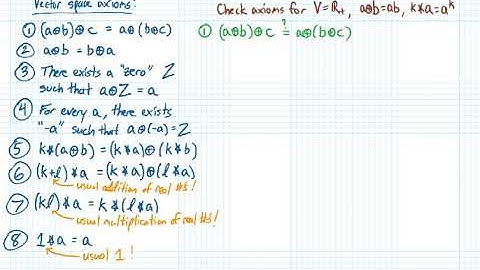 Vector space axioms:
① (a⊕b)⊕c = a⊕(b⊕c)
② a⊕b = b⊕a
③ There exists a "zero" Z
such that a⊕Z = a
④ For every a, there exists
"-a" such that a⊕(-a)=Z
⑤ k*(a⊕b) = (k*a)⊕(k*b)
⑥ (k+l)*a = (k*a)⊕(l*a)
usual addition of real #s!
⑦ (kl)*a = k*(l*a)
usual multiplication of real #s!
⑧ 1*a = a
usual 1!
Check axioms for V=ℝ₊, a⊕b=ab, k*a=aᵏ
① (a⊕b)⊕c ≟ a⊕(b⊕c)